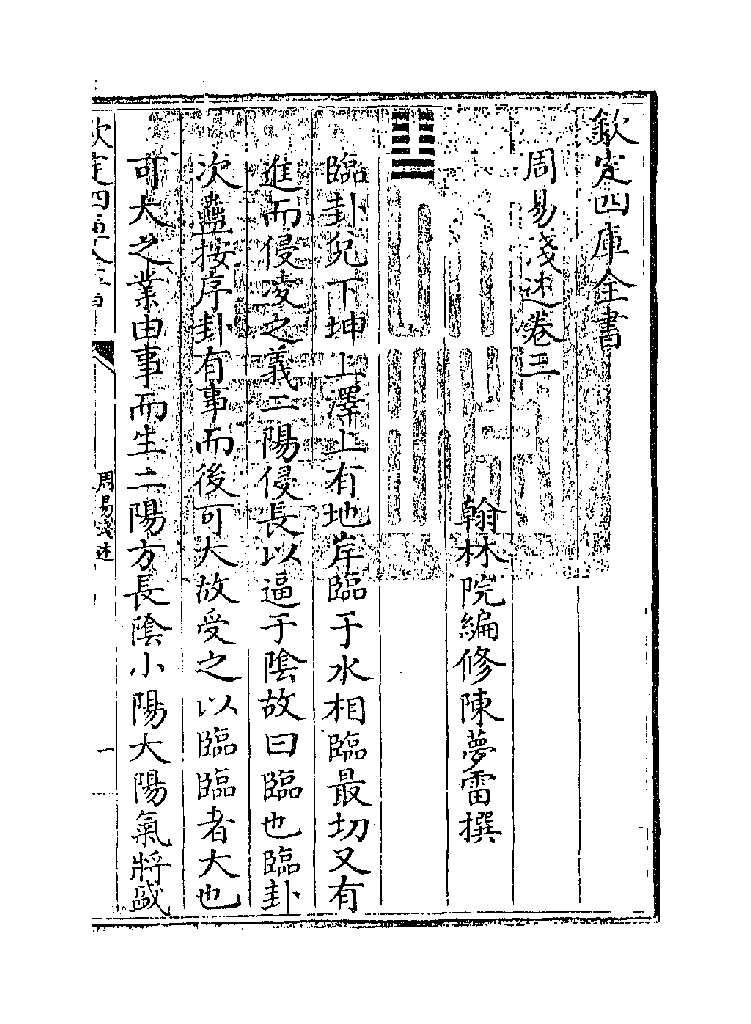 欽定四庫全書
周易淺述卷三
翰林院編修陳夢雷撰
䷒
臨卦兌下坤上澤上有地岸臨于水相臨最切又有
進而侵凌之義二陽侵長以逼于陰故曰臨也臨卦
次蠱按序卦有事而後可大故受之以臨臨者大也
可大之業由事而生二陽方長陰小陽大陽氣將盛
周易淺述
一